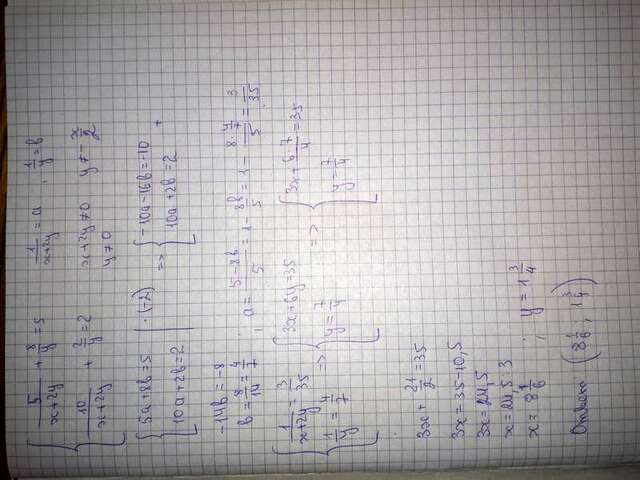 5/(x+2y) + 8/y = 5    1/(x+2y) = a , 1/y = b
10/(x+2y) + 2/y = 2    x+2y≠0    y≠-x/2
y≠0
{5a+8b=5 | ·(-2) => {-10a-16b=-10
10a+2b=2    10a+2b=2 +
-14b=-8
b=8/14=4/7 ; a=(5-8b)/5=1-8b/5=1-(8·4/7)/5=3/35
{1/(x+2y)=3/35 => {3x+6y=35 => {3x+(6·7)/4=35
1/y=4/7    y=7/4    y=7/4
3x+21/2=35
3x=35-10,5
3x=24,5
x=24,5:3
x=8 1/6 ; y=1 3/4
Ответ (8 1/6 ; 1 3/4)